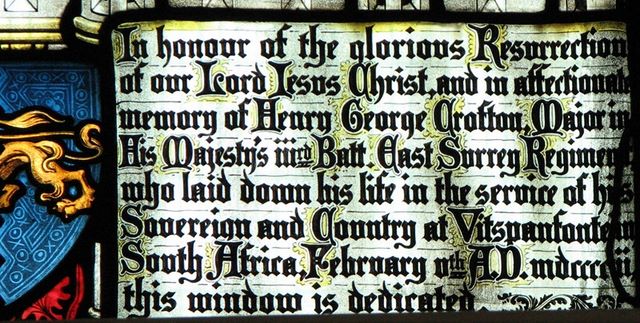 In honour of the glorious Resurrection
of our Lord Jesus Christ, and in affectionate
memory of Henry George Crofton, Major in
His Majesty's iiird Batt. East Surrey Regiment
who laid down his life in the service of his
Sovereign and Country at Vitspanfontein
South Africa February vth A.D. mdccccii
this window is dedicated